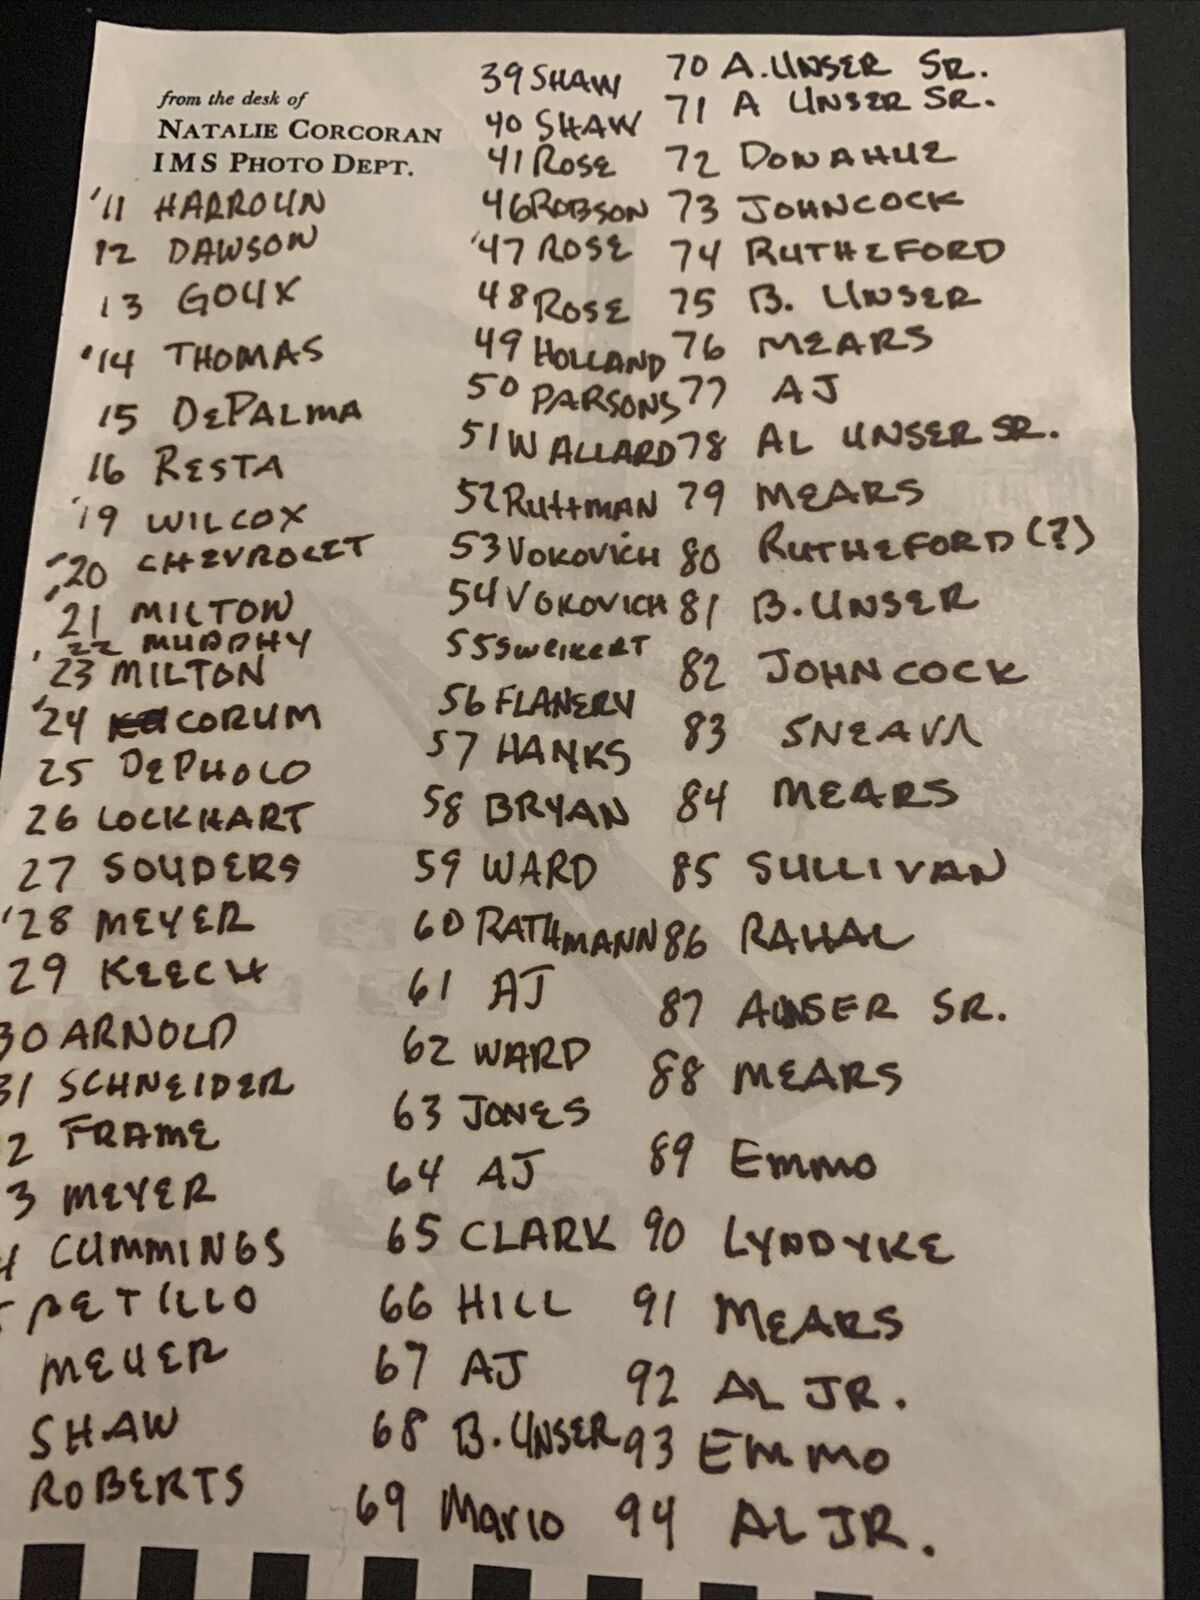 from the desk of
NATALIE CORCORAN
IMS PHOTO DEPT.
'11 HARROUN
12 DAWSON
13 GOUX
'14 THOMAS
15 DEPALMA
16 RESTA
'19 WILCOX
'20 CHEVROLET
'21 MILTON
'22 MURPHY
23 MILTON
'24 CORUM
25 DEPHOLO
26 LOCKHART
27 SOUDERS
'28 MEYER
29 KEECH
30 ARNOLD
31 SCHNEIDER
2 FRAME
3 MEYER
4 CUMMINGS
PETILLO
MEYER
SHAW
ROBERTS
39 SHAW
40 SHAW
41 ROSE
46 ROBSON
'47 ROSE
48 ROSE
49 HOLLAND
50 PARSONS
51 WALLARD
52 RUTTMAN
53 VOKOVICH
54 VOKOVICH
55 SWEIKERT
56 FLANERY
57 HANKS
58 BRYAN
59 WARD
60 RATHMANN
61 AJ
62 WARD
63 JONES
64 AJ
65 CLARK
66 HILL
67 AJ
68 B. UNSER
69 Mario
70 A. UNSER SR.
71 A UNSER SR.
72 DONAHUE
73 JOHNCOCK
74 RUTHEFORD
75 B. UNSER
76 MEARS
77 AJ
78 AL UNSER SR.
79 MEARS
80 RUTHEFORD (?)
81 B. UNSER
82 JOHNCOCK
83 SNEAVA
84 MEARS
85 SULLIVAN
86 RAHAL
87 A UNSER SR.
88 MEARS
89 EMMO
90 LYNDYKE
91 MEARS
92 AL JR.
93 EMMO
94 AL JR.